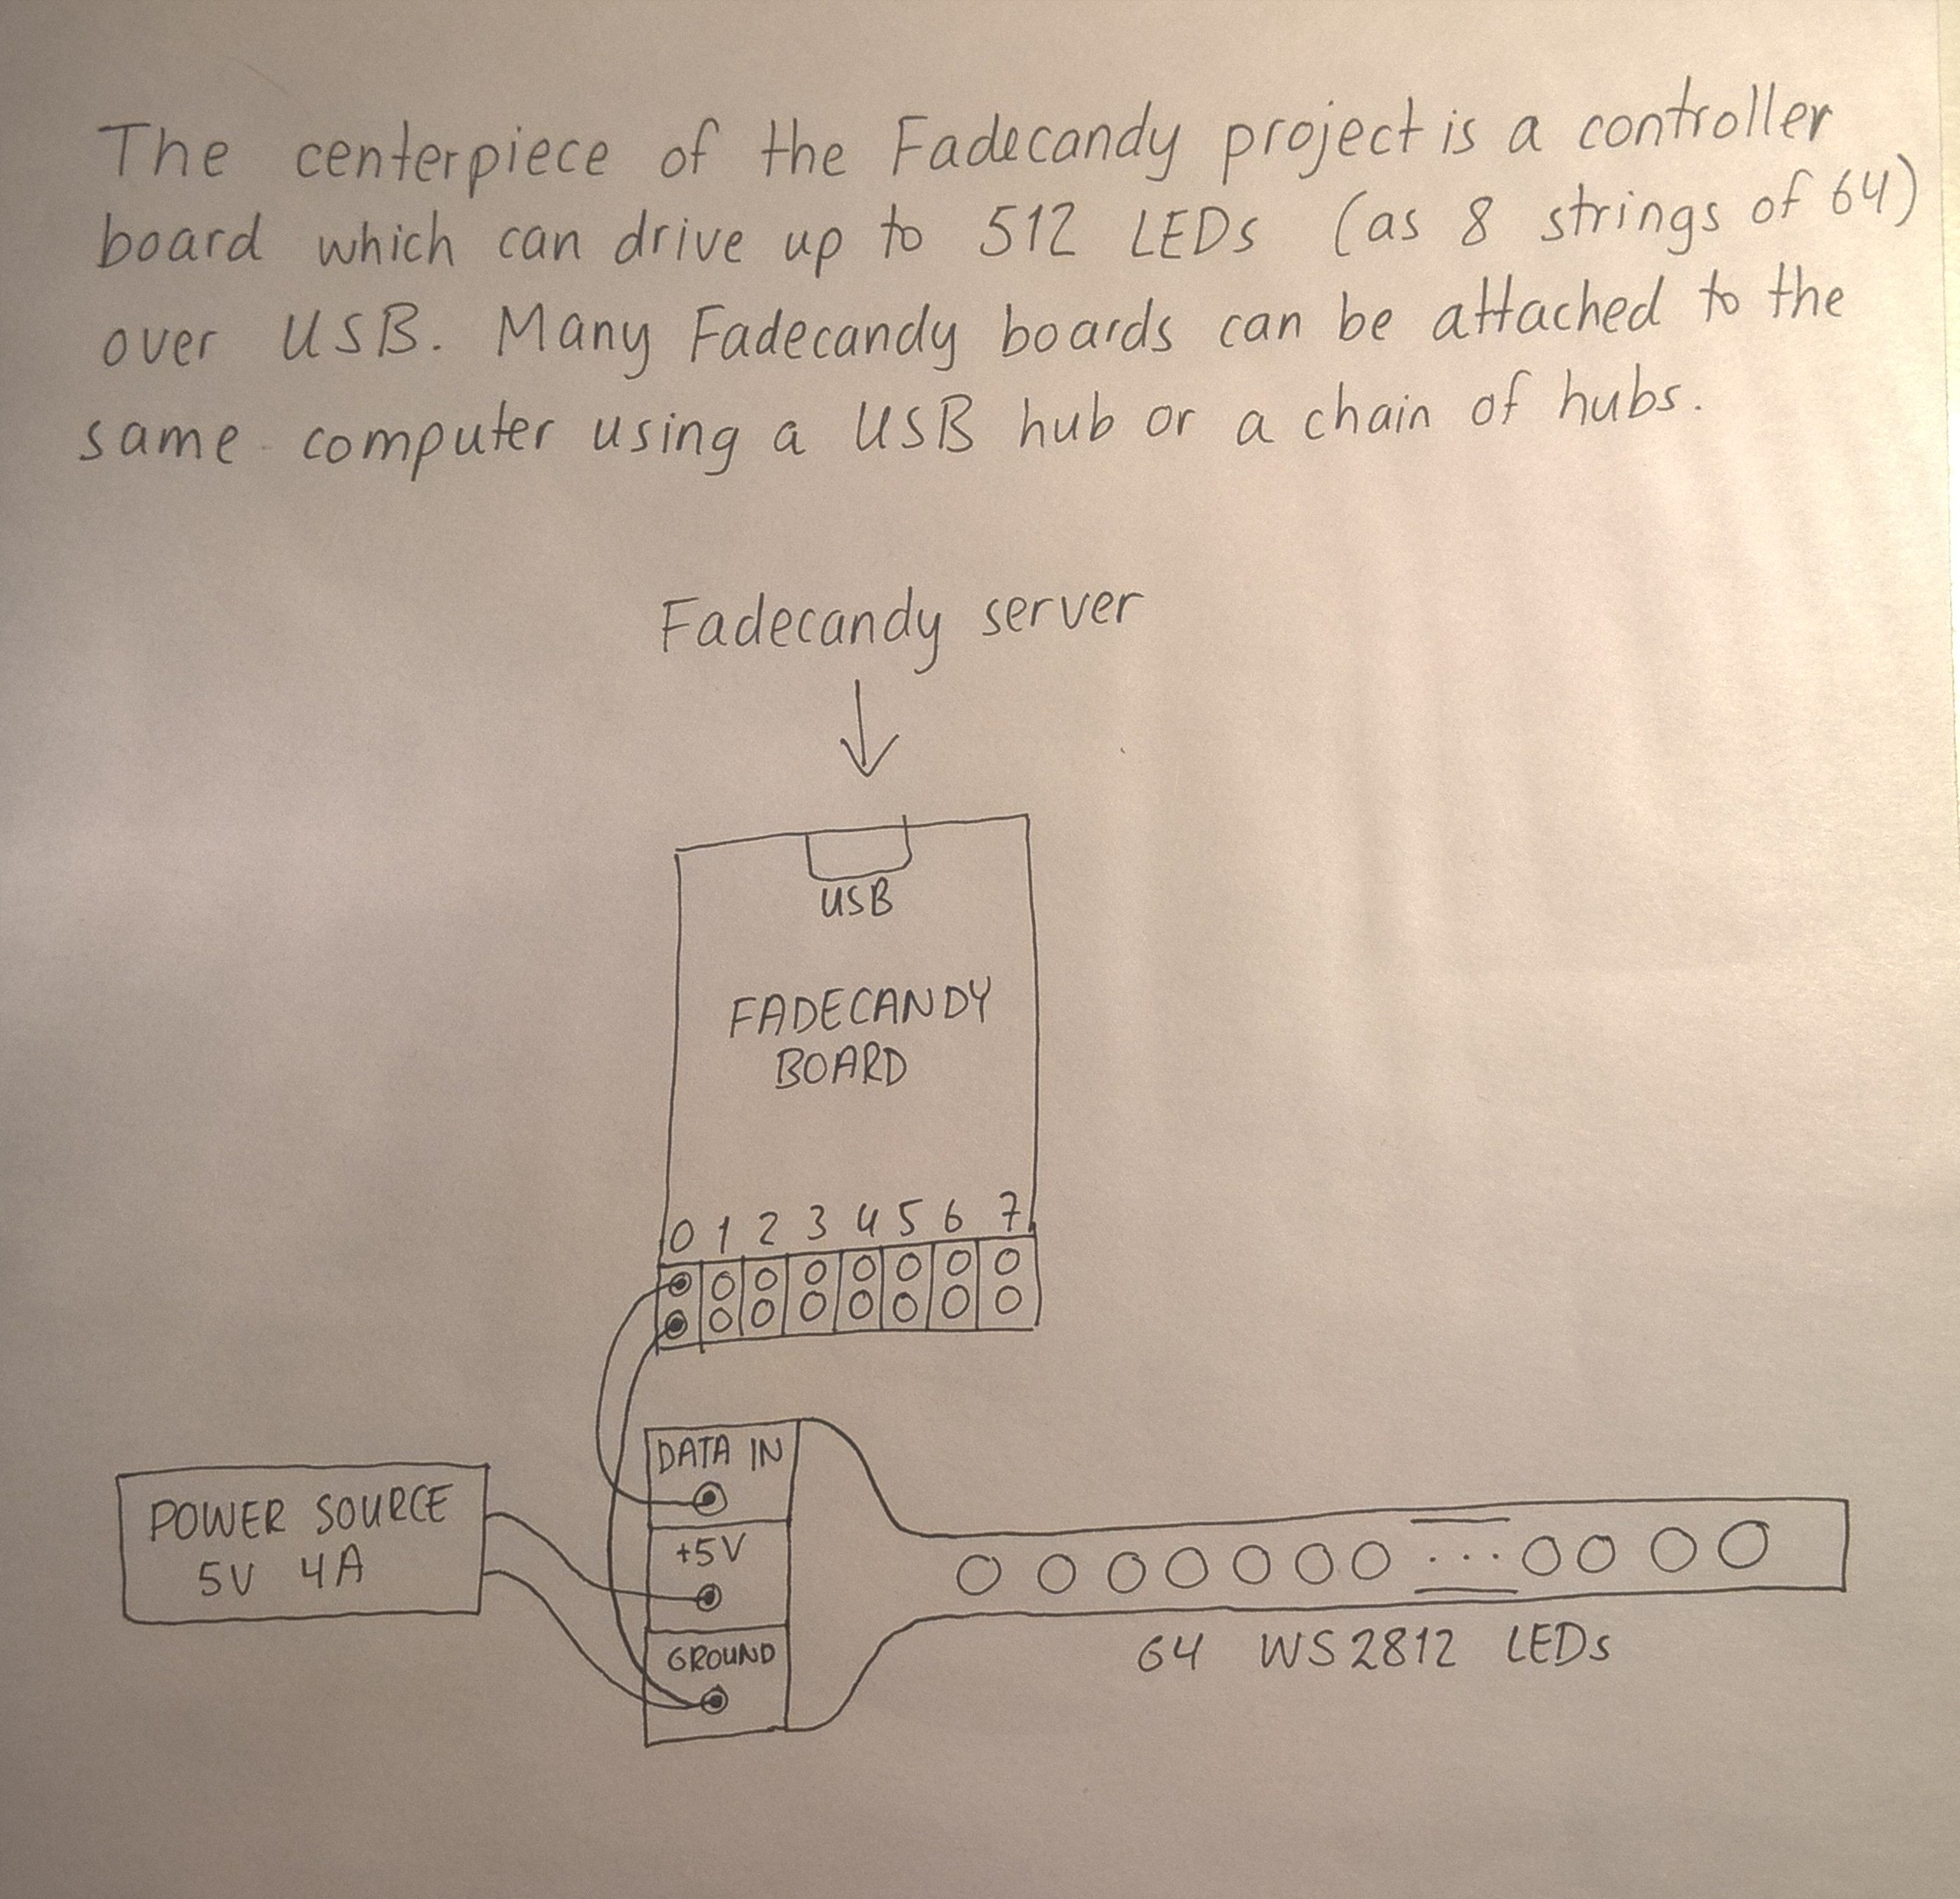 The centerpiece of the Fadecandy project is a controller
board which can drive up to 512 LEDs (as 8 strings of 64)
over USB. Many Fadecandy boards can be attached to the
same computer using a USB hub or a chain of hubs.
Fadecandy server
USB
FADECANDY
BOARD
0 1 2 3 4 5 6 7
DATA IN
+5V
GROUND
POWER SOURCE
5V 4A
64 WS2812 LEDs